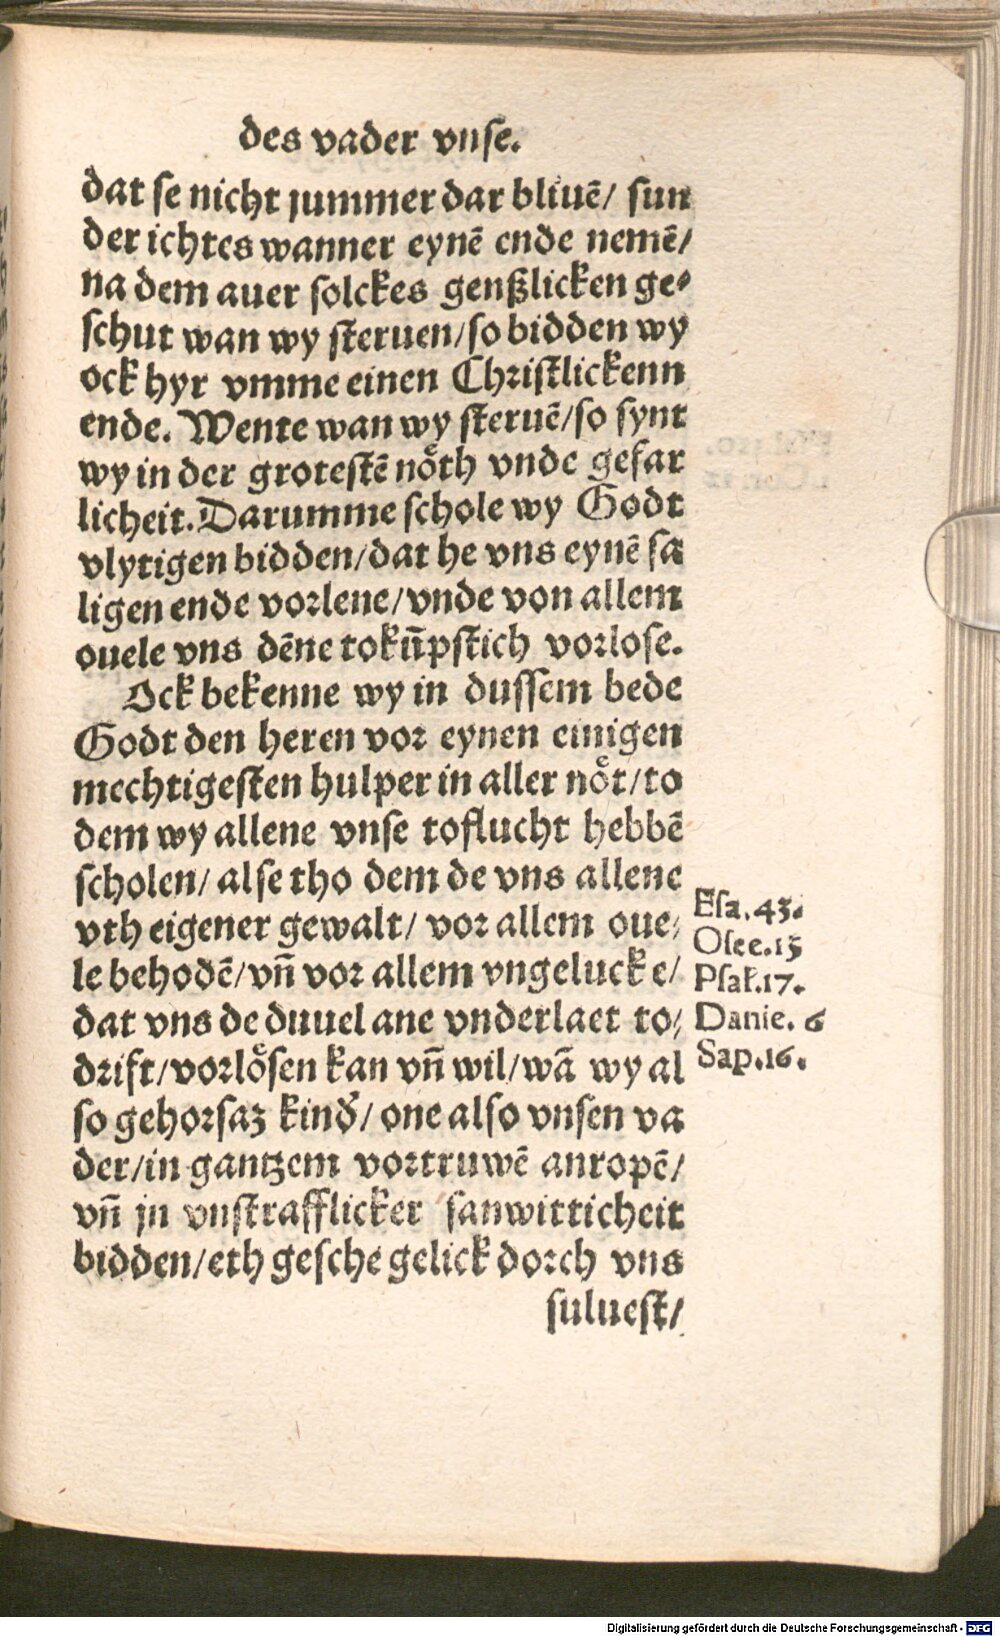 des vader vnse.
dat se nicht jummer dar bliuē/ sun
der ichtes wanner eynē ende nemē/
na dem auer solckes genßlicken ge⸗
schut wan wy steruen/so bidden wy
ock hyr vmme einen Christlickenn
ende. Wente wan wy steruē/so synt
wy in der grotestē nöth vnde gefar
licheit.Darumme schole wy Godt
vlytigen bidden/dat he vns eynē sa
ligen ende vorlene/vnde von allem
ouele vns dēne tokūpstich vorlose.
Ock bekenne wy in dussem bede
Godt den heren vor eynen einigen
mechtigesten hulper in aller nöt/to
dem wy allene vnse toflucht hebbē
scholen/ alse tho dem de vns allene
vth eigener gewalt/ vor allem oue⸗
le behodē/vn̄ vor allem vngelucke/
dat vns de duuel ane vnderlaet to⸗
drift/vorlösen kan vn̄ wil/wā wy al
so gehorsaz kind'/ one also vnsen va
der/in gantzem vortruwē anropē/
vn̄ jn vnstrafflicker sanwitticheit
bidden/eth gesche gelick dorch vns
suluest/
Esa.43.
Osee.13
Psal.17.
Danie. 6
Sap.16.
Digitalisierung gefördert durch die Deutsche Forschungsgemeinschaft - DFG